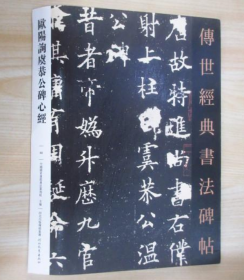 傳世經典書法碑帖
唐故特進尚書右僕
射上柱國虞恭公温
帝媯升曆九官
其庸有周誕命六
歐陽詢虞恭公碑心經